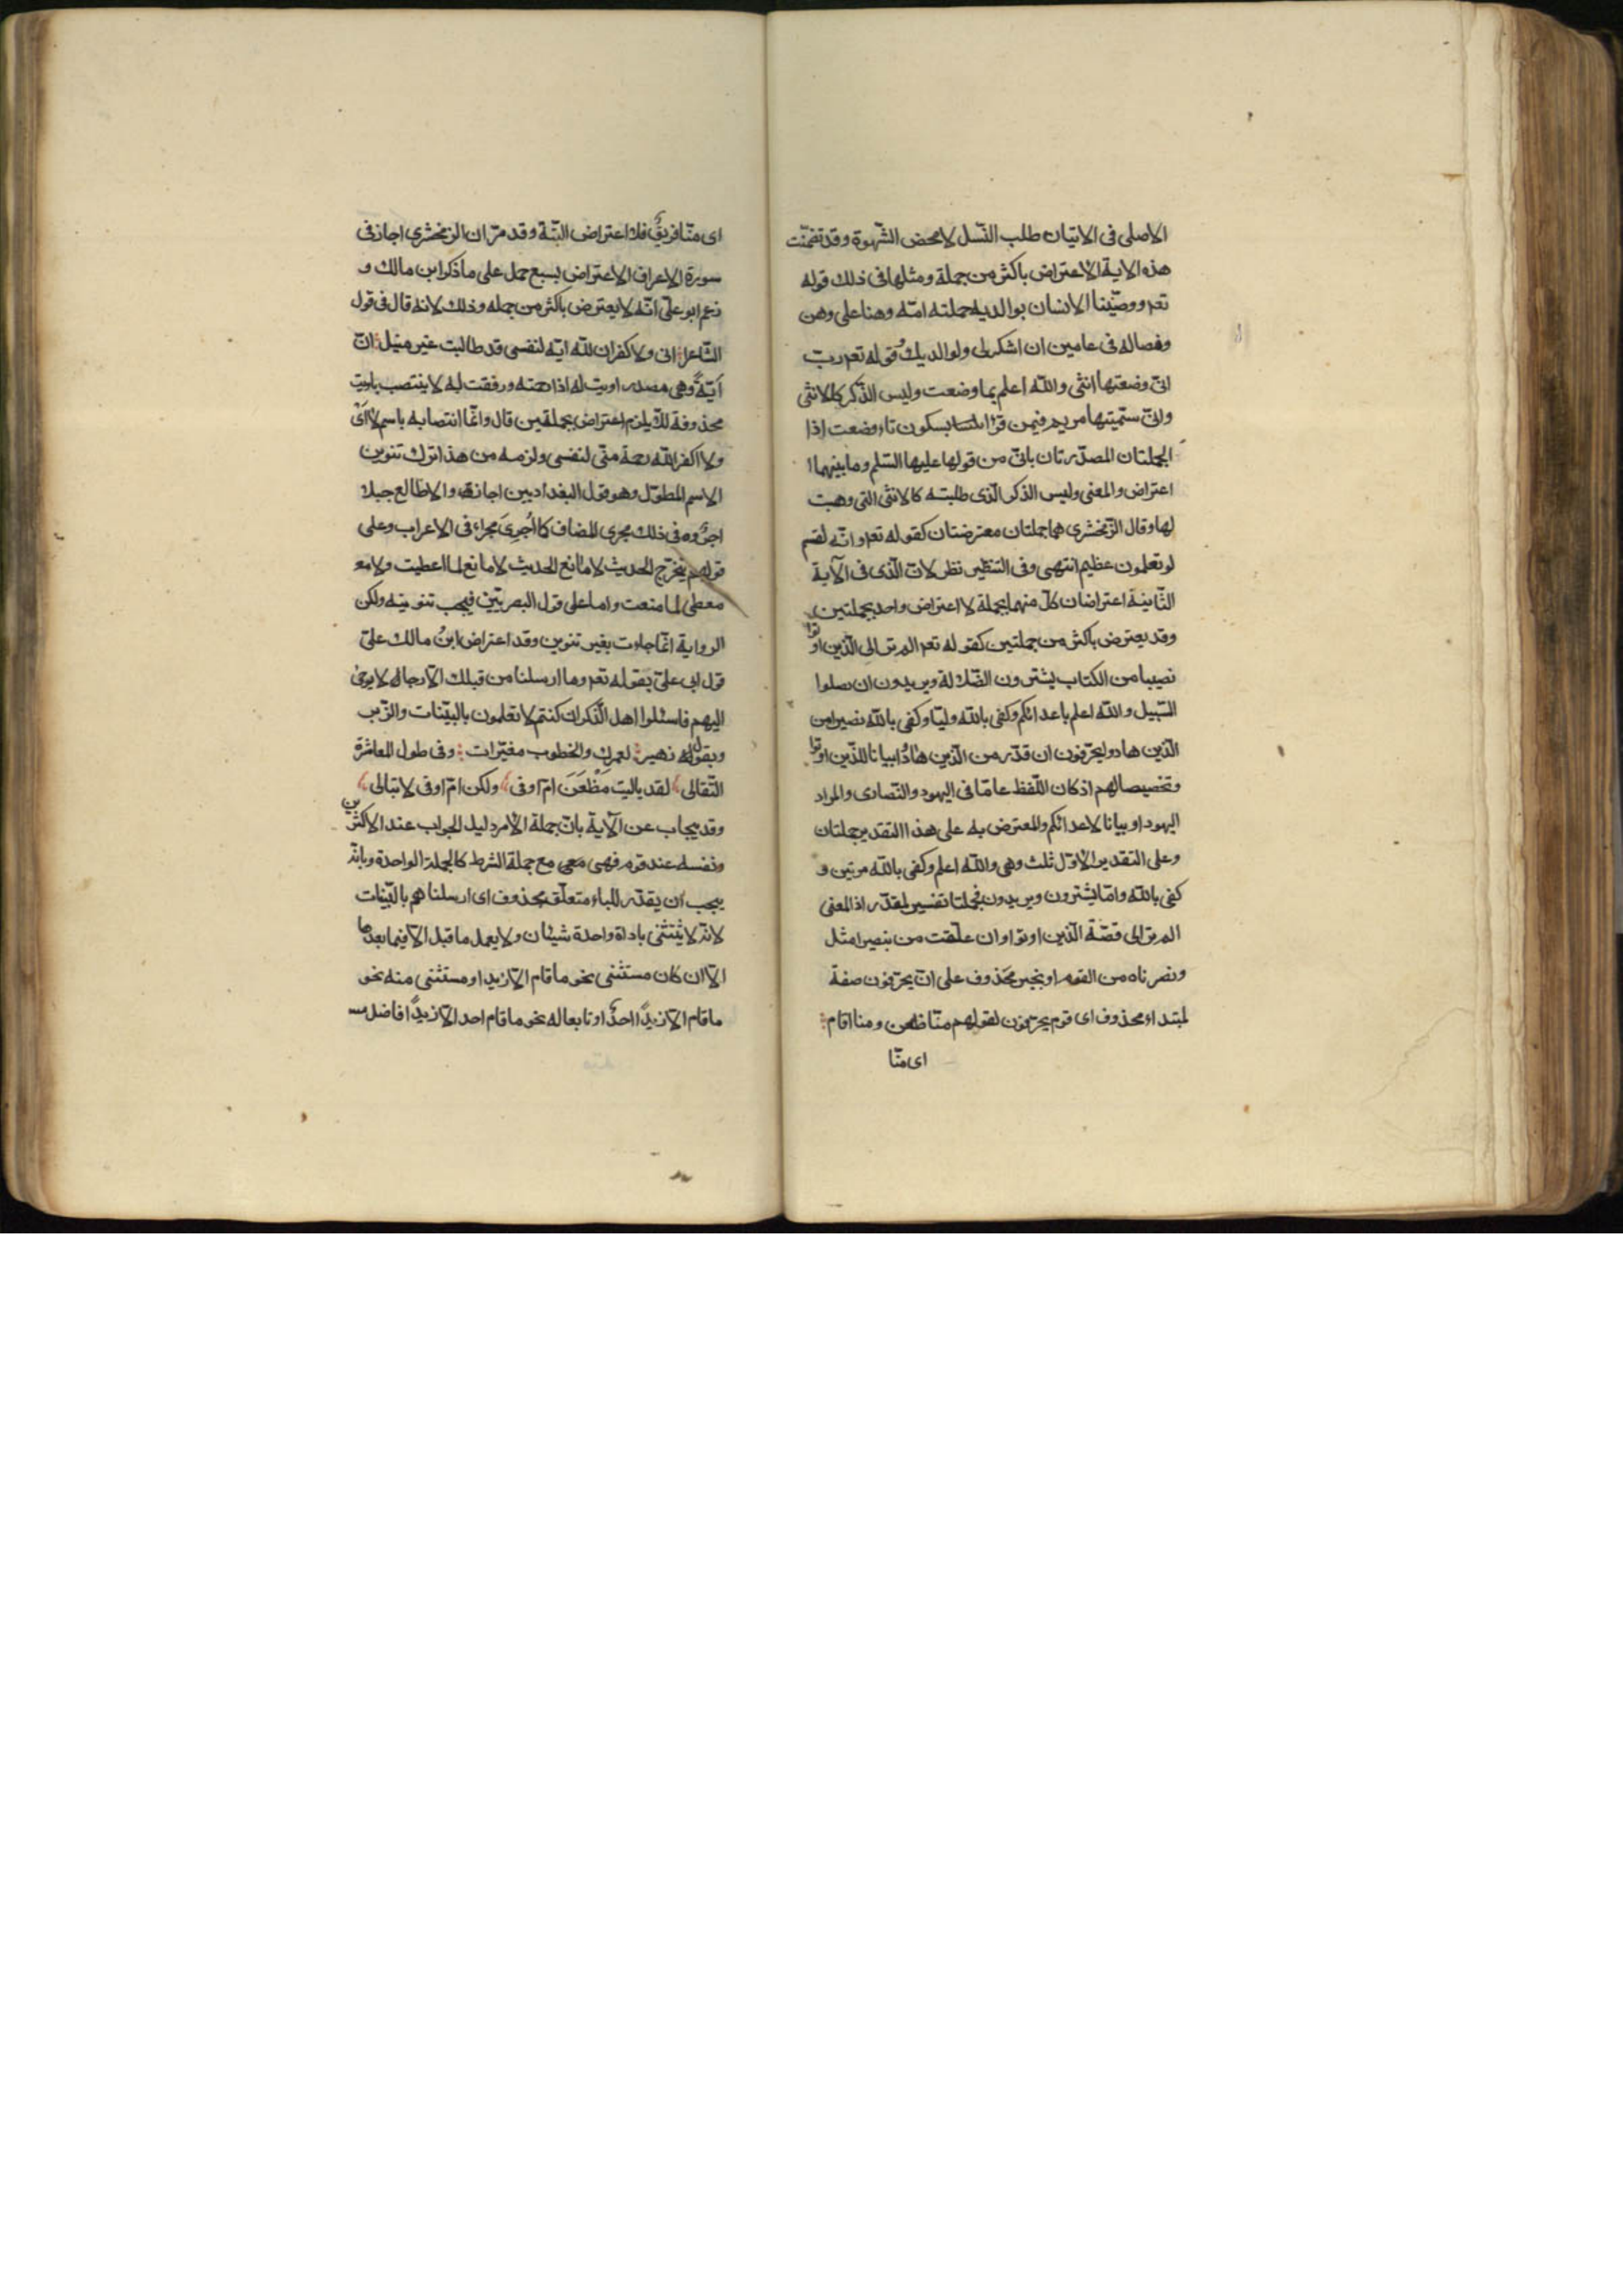 الاصلى فى الاتيان طلب النّسل لا محض الشّهوة وقد تضمّنت
هذه الاية الاعتراض باكثر من جملة ومثلها فى ذلك قوله
تعم ووصّينا الانسان بوالديه حملته امّه وهنا على وهن
وفصاله فى عامين ان اشكر لى ولوالديك وقوله تعم ربّ
انّى وضعتها انثى والله اعلم بما وضعت وليس الذّكر كالانثى
وانّى سمّيتها مريم فيمن قرا بسكون تاء وضعت اذا
الجملتان المصدّرتان بانّى من قولها عليها السّلم وما بينهما
اعتراض والمعنى وليس الذكر الّذى طلبته كالانثى التى وهبت
لها وقال الزّمخشرى هما جملتان معترضتان كقوله تعم وانّه لقسم
لو تعلمون عظيم انتهى وفى التنظير نظر لانّ الّذى فى الآية
الثّانية اعتراضان كلّ منهما بجملة لا اعتراض واحد بجملتين
وقد يعترض باكثر من جملتين كقوله تعم الم تر الى الّذين اوتوا
نصيبا من الكتاب يشترون الضّلالة ويريدون ان تضلوا
السّبيل والله اعلم باعدائكم وكفى بالله وليّا وكفى بالله نصيرا من
الّذين هادوا يحرّفون ان قدّر من الّذين هادوا بيانا للذّين اوتوا
وتخصيصا لهم اذ كان اللّفظ عامّا فى اليهود والنّصارى والمراد
اليهود او بيانا لاعدائكم والمعترض به على هذا التقدير جملتان
وعلى التقدير الاوّل ثلث وهى والله اعلم وكفى بالله مرتين و
كفى بالله وامّا يشترون ويريدون فجملتا تفسير لمقدّر اذ المعنى
الم تر الى قصّة الّذين اوتوا وان علّقت من بنصيرا مثل
ونصرناه من القوم او بخبر محذوف على انّ يحرّفون صفة
لمبتداء محذوف اى قوم يحرّفون لقولهم منّا ظعن ومنا اقام
اى منّا
اى منّا فريق فلا اعتراض البتّة وقد مرّ ان الزمخشرى اجاز فى
سورة الاعراف الاعتراض بسبع جمل على ما ذكر ابن مالك و
زعم ابو علىّ انّه لا يعترض باكثر من جمله وذلك لانه قال فى قول
الشّاعر انى ولا كفران لله ايّه لنفسى قد طالبت غير منيل انّ
ايّةً وهى مصدر اويت له اذا رحمته ورفقت به لا ينتصب باويت
محذوفة لئلّا يلزم اعتراض بجملتين قال وانّما انتصابه باسم لا اى
ولا اكفر الله رحمة منّى لنفسى ولزمه من هذا ترك تنوين
الاسم المطوّل وهو قول البغداديين اجازوا لا طالع جبلا
اجروه فى ذلك مجرى المضاف كما اُجرِىَ مجراء فى الاعراب وعلى
قولهم يتخرّج الحديث لا مانع الحديث لا مانع لما اعطيت ولا مع
معطى لما منعت واما على قول البصريّين فيجب تنوينه ولكن
الرواية انّما جاءت بغير تنوين وقد اعترض ابن مالك علىّ
قول ابى علىّ بقوله تعم وما ارسلنا من قبلك الّا رجالا يوحى
اليهم فاسئلوا اهل الذّكر ان كنتم لا تعلمون بالبيّنات والزّبر
وبقوله زهير لعمرك والخطوب مغيّرات وفى طول المعاشرة
التّقالى لقد باليت مَظْعَنَ امّ اوفى ولكن امّ اوفى لا تبالى
وقد يجاب عن الآية بانّ جملة الامر دليل الجواب عند الاكثرين
ونفسه عند قوم فهى مع جملة الشرط كالجملة الواحدة وبانّه
يجب ان يقدّر للباء متعلّق محذوف اى ارسلناهم بالبيّنات
لانّه لا يثتثنى باداة واحدة شيئان ولا يعمل ما قبل الّا فيما بعدها
الّا ان كان مستثنى نحو ما قام الّا زيد او مستثنى منه نحو
ما قام الّا زيدًا احدٌ او تابعا له نحو ما قام احد الّا زيدًا فاضل